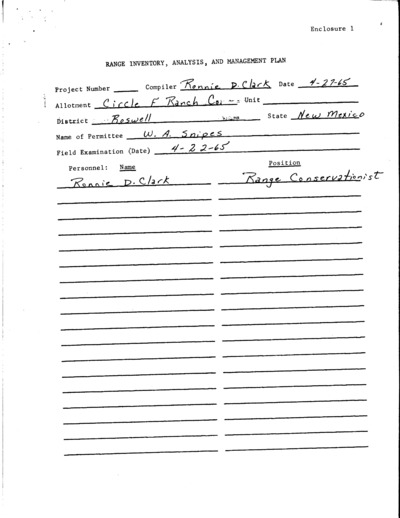 Enclosure 1
RANGE INVENTORY, ANALYSIS, AND MANAGEMENT PLAN
Project Number Compiler Ronnie D. Clark Date 4-27-65
Allotment Circle F Ranch Co. Unit
District Roswell State New Mexico
Name of Permittee W. A. Snipes
Field Examination (Date) 4-22-65
Personnel: Name Position
Ronnie D. Clark Range Conservationist